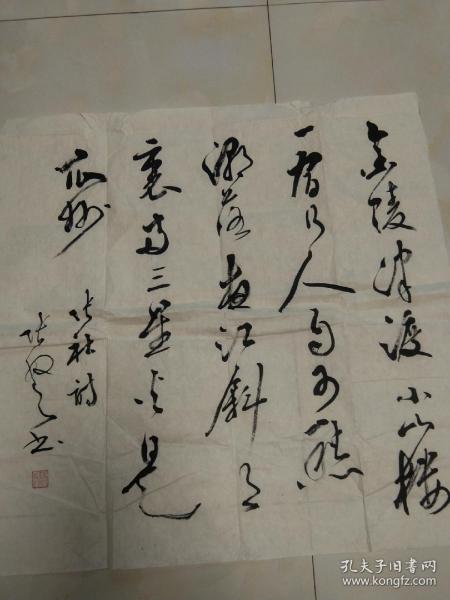 金陵津渡小山楼
一宿行人自可愁
潮落夜江斜月
裏两三星火是
瓜州
张祜诗
张之书
孔夫子旧书网
www.kongfz.com